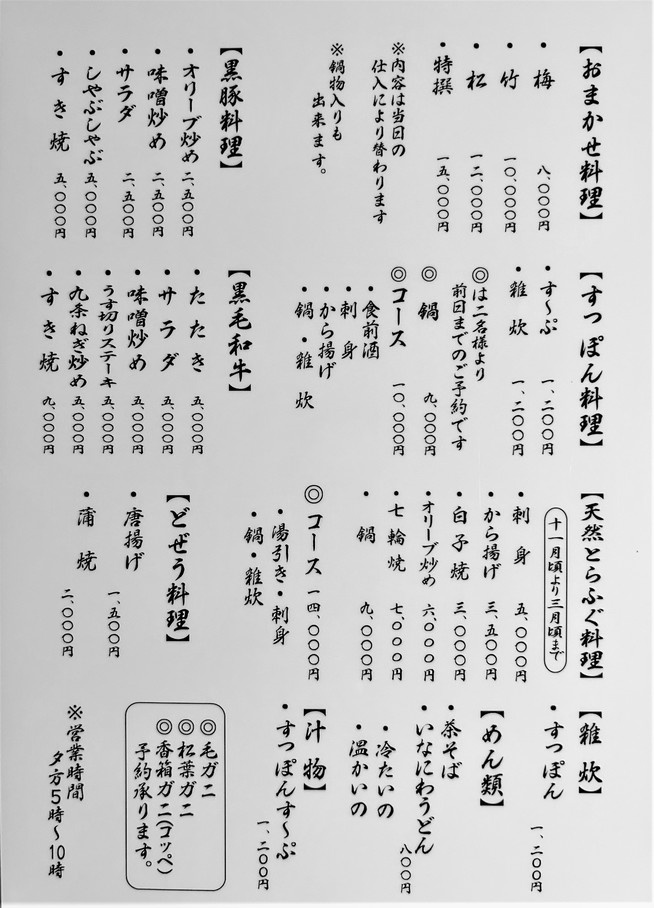 【おまかせ料理】
・梅 八、〇〇〇円
・竹 一〇、〇〇〇円
・松 一二、〇〇〇円
・特撰 一五、〇〇〇円
※内容は当日の
仕入により替わります
※鍋物入りも
出来ます。
【黒豚料理】
・オリーブ炒め 二、五〇〇円
・味噌炒め 二、五〇〇円
・サラダ 二、五〇〇円
・しゃぶしゃぶ 五、〇〇〇円
・すき焼 五、〇〇〇円
【すっぽん料理】
・す〜ぷ 一、二〇〇円
・雑炊 一、二〇〇円
◎は二名様より
前日までのご予約です
◎鍋 九、〇〇〇円
◎コース 一〇、〇〇〇円
・食前酒
・刺身
・から揚げ
・鍋・雑炊
【黒毛和牛】
・たたき 五、〇〇〇円
・サラダ 五、〇〇〇円
・味噌炒め 五、〇〇〇円
・うす切りステーキ 五、〇〇〇円
・九条ねぎ炒め 五、〇〇〇円
・すき焼 九、〇〇〇円
【天然とらふぐ料理】
十一月頃より三月頃まで
・刺身 五、〇〇〇円
・から揚げ 三、五〇〇円
・白子焼 三、〇〇〇円
・オリーブ炒め 六、〇〇〇円
・七輪焼 七、〇〇〇円
・鍋 九、〇〇〇円
◎コース 一四、〇〇〇円
・湯引き・刺身
・鍋・雑炊
【どぜう料理】
・唐揚げ 一、五〇〇円
・蒲焼 二、〇〇〇円
【雑炊】
・すっぽん 一、二〇〇円
【めん類】
・茶そば
・いなにわうどん 八〇〇円
・冷たいの
・温かいの
【汁物】
・すっぽんす〜ぷ 一、二〇〇円
◎毛ガニ
◎松葉ガニ
◎香箱ガニ(コッペ)
予約承ります。
※営業時間
夕方5時〜10時